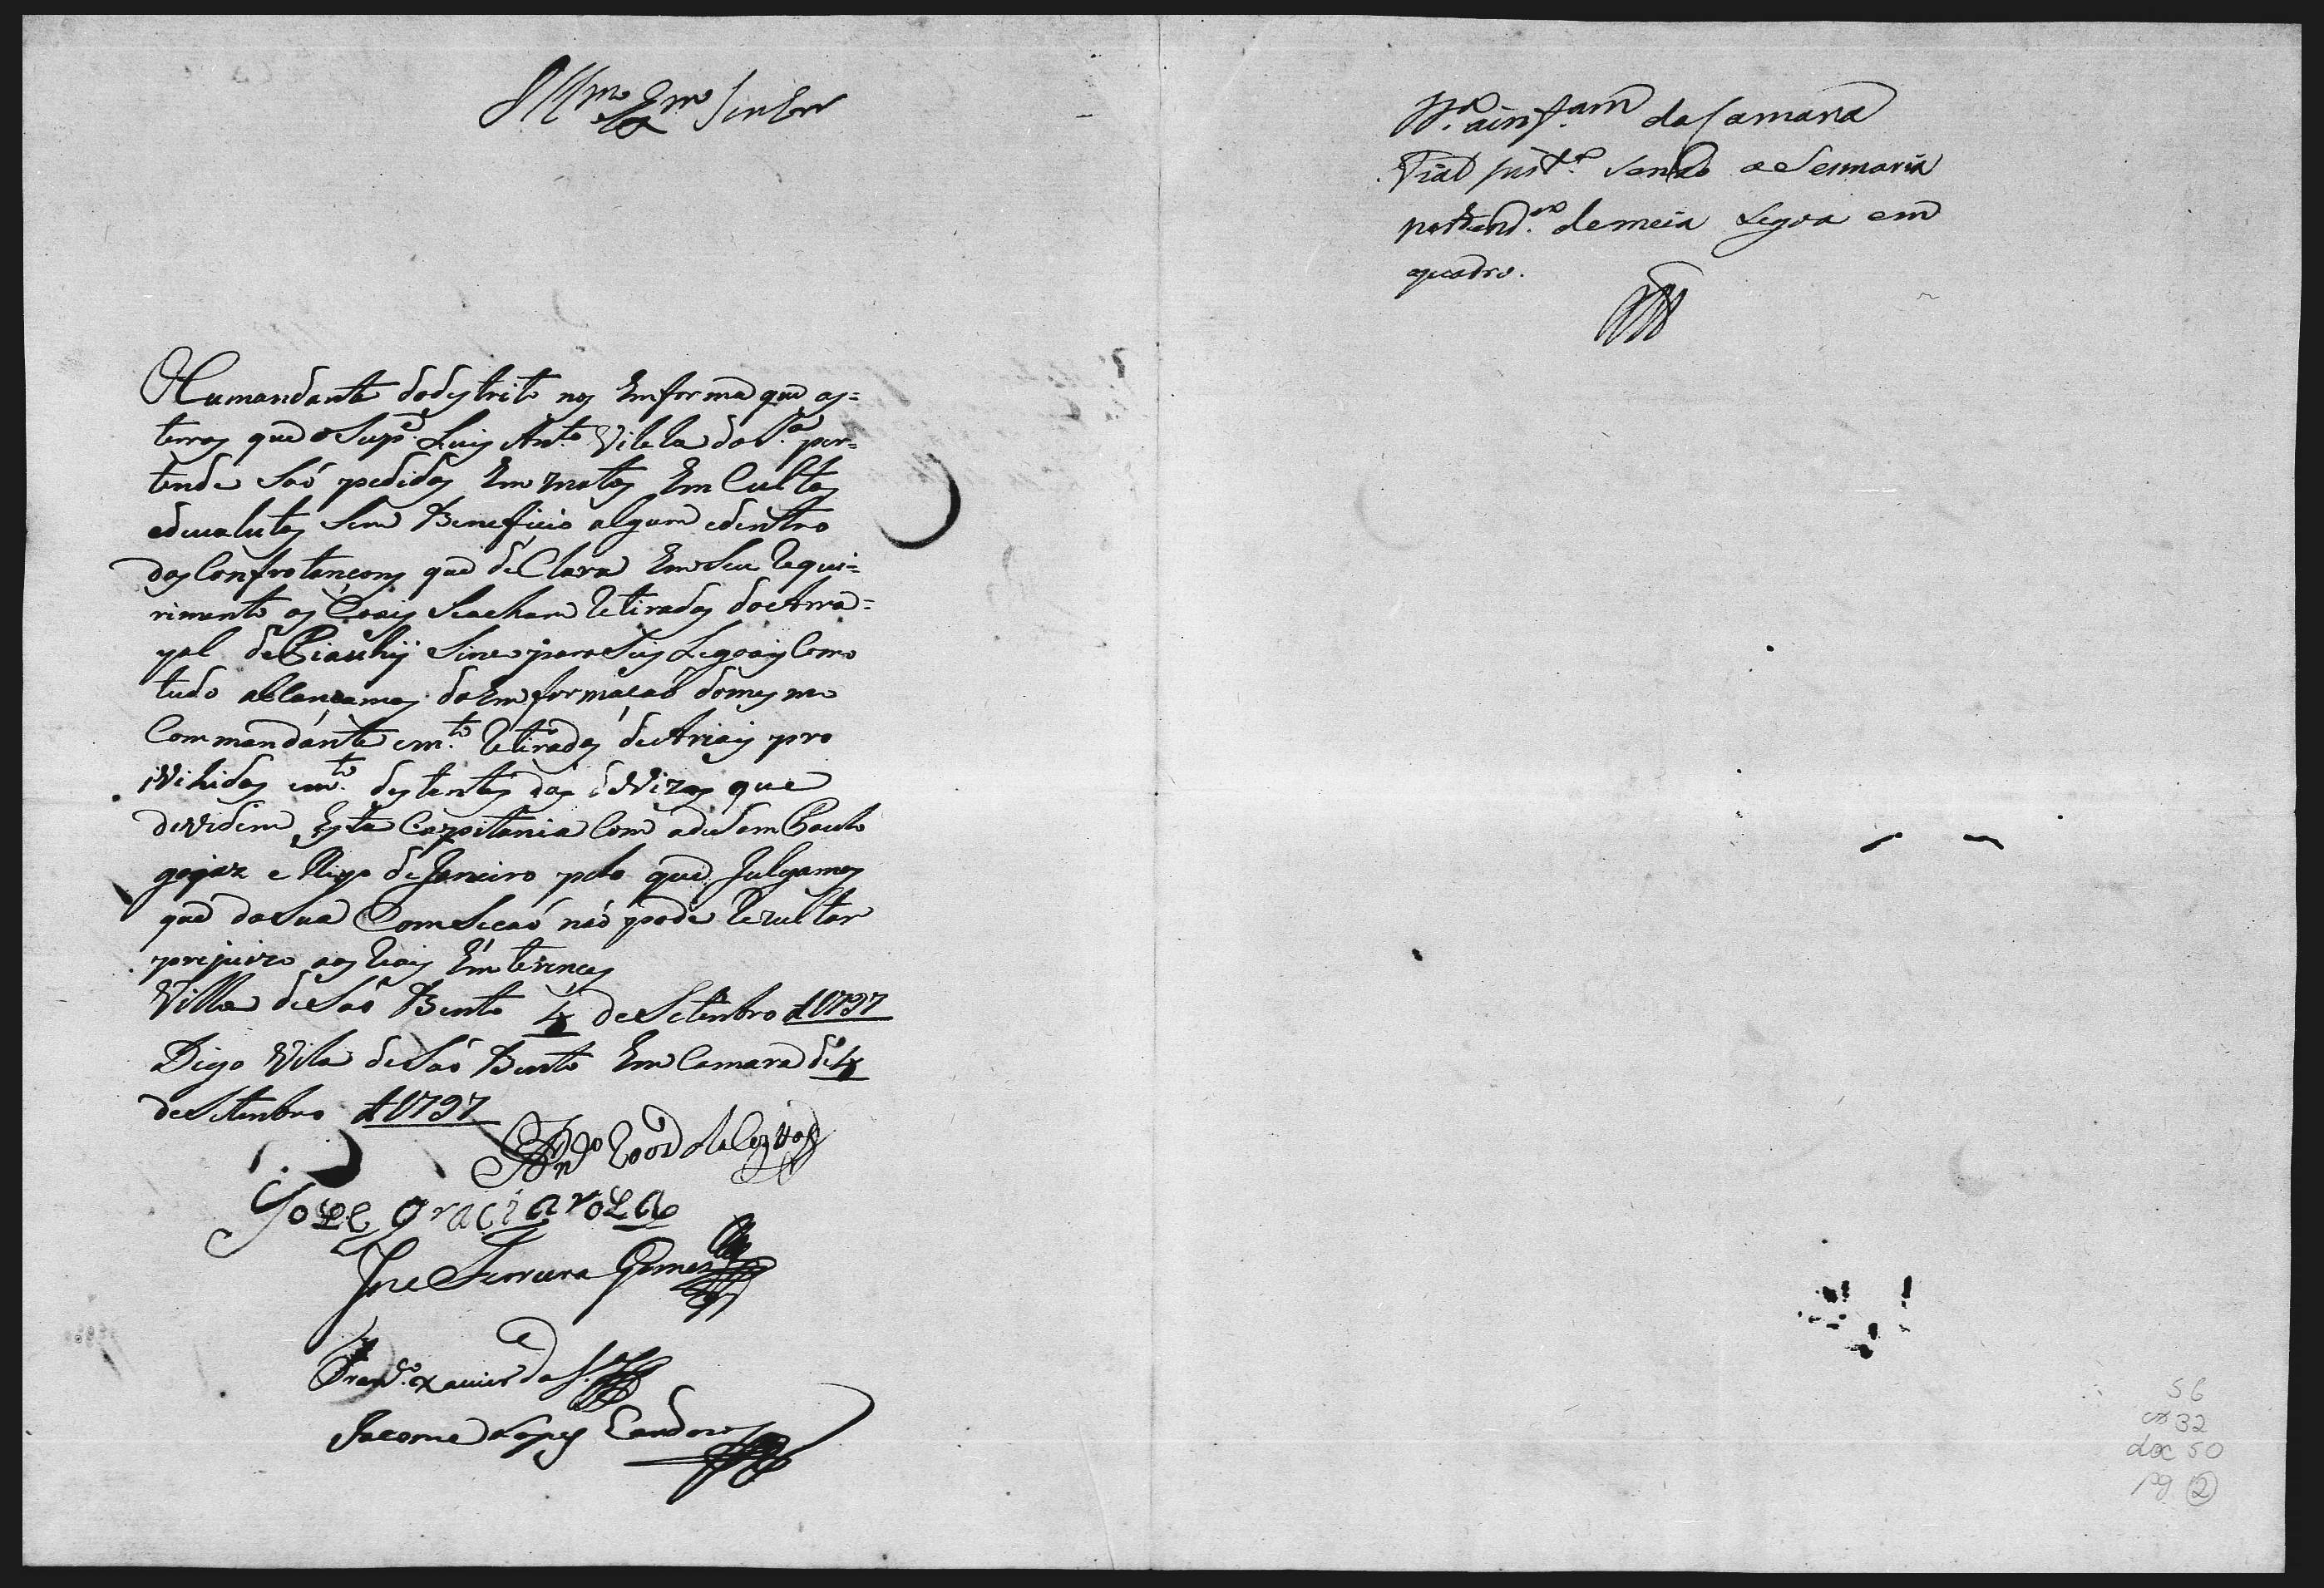 Illmo Exmo Senhor
O Cumandante do destrito nos Emforma que as=
terras que o Supe. Luis Anto. Vilela da Sa. per=
tende Saó pedidas Em matos Em Cultos
edevalutos Sem Beneficio algum edentro
das Confrotançons que deClara Em Seu Requi=
rimento as Coais Seacham Retiradas do Arra=
yal de Piauhÿ Sinco para Seis Legoas Como
tudo alCançamos da Emformaçaó do mesmo
Commandante emto. Retiradas de Ariais pro
ivihidas emto. destentes das deVizas que
devidem Esta Capitania Com a de Sam Paulo
gojaz e Rigo de Janeiro pelo que Julgamos
que da sua ComSecaó naó pode Rezultar
prejuizo aos Riais Emterences
Villa de Saó Bento 4 de Setenbro d 1797
Digo Vila de Saó Bento Em Camara de 4
de Setenbro d 1797
José graciaroza
Joze Ferreira Gomes
Franco. Xavier da Sa.
Jacome Lopes
da Camara
Sendo a Sesmaria
de meia Legoa em
quadro.
56
cx 32
doc 50
pg 2